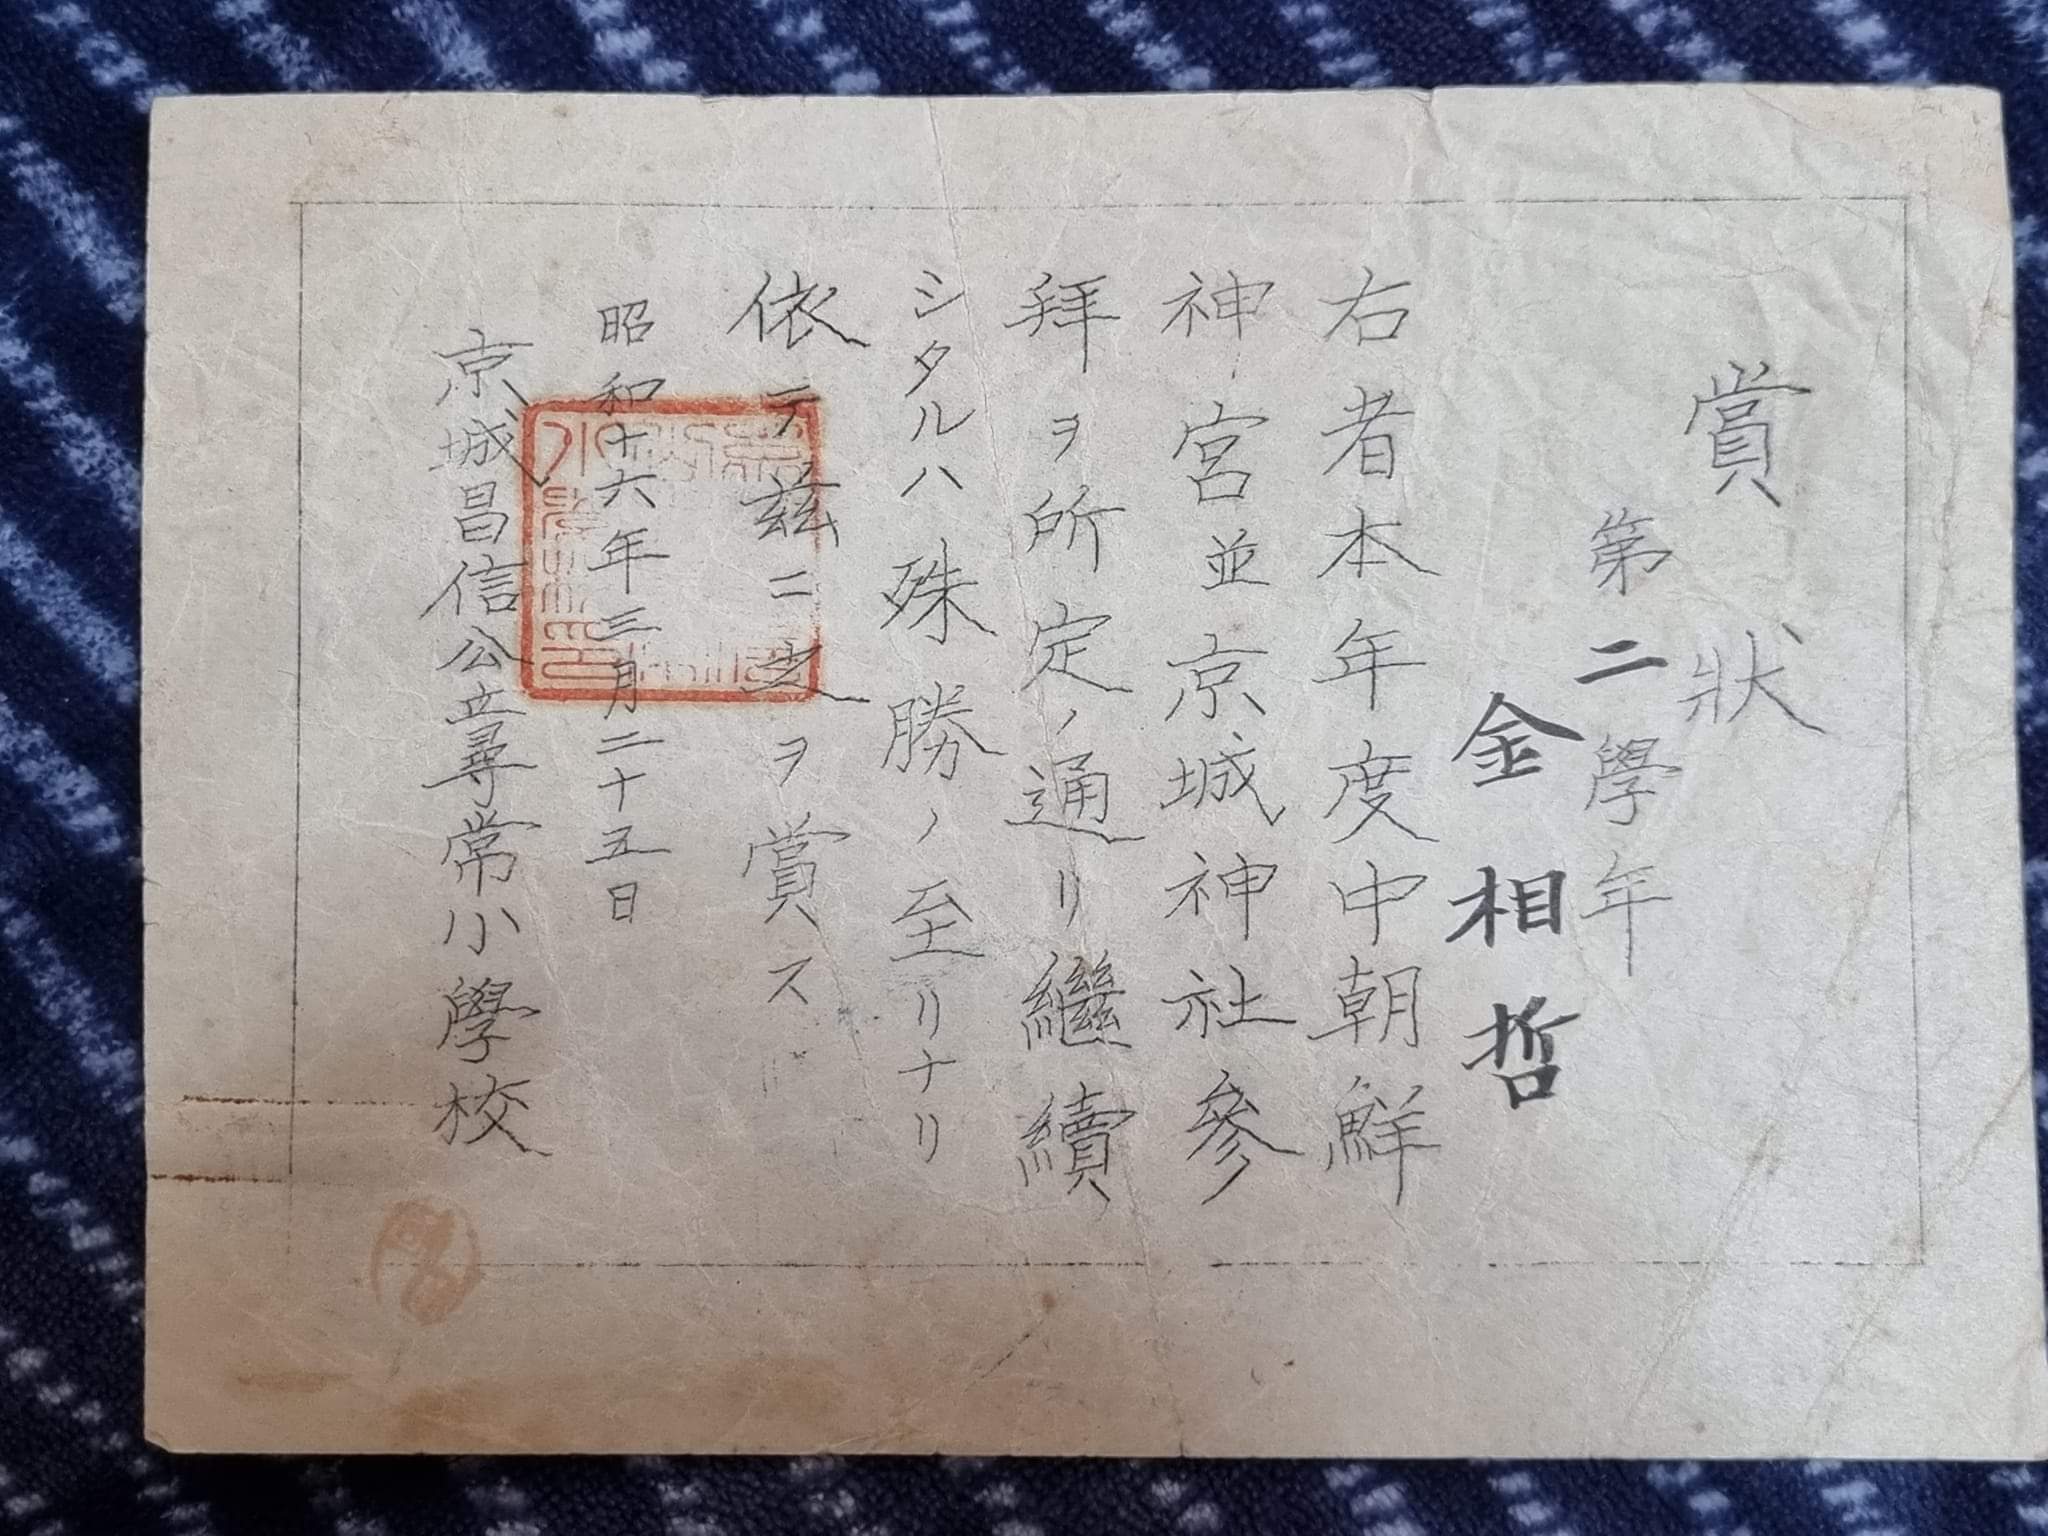 賞狀
第二學年
金相哲
右者本年度中朝鮮
神宮並京城神社參
拜ヲ所定ノ通リ繼續
シタルハ殊勝ノ至リナリ
依テ茲ニ之ヲ賞ス
昭和十六年三月二十五日
京城昌信公立尋常小學校